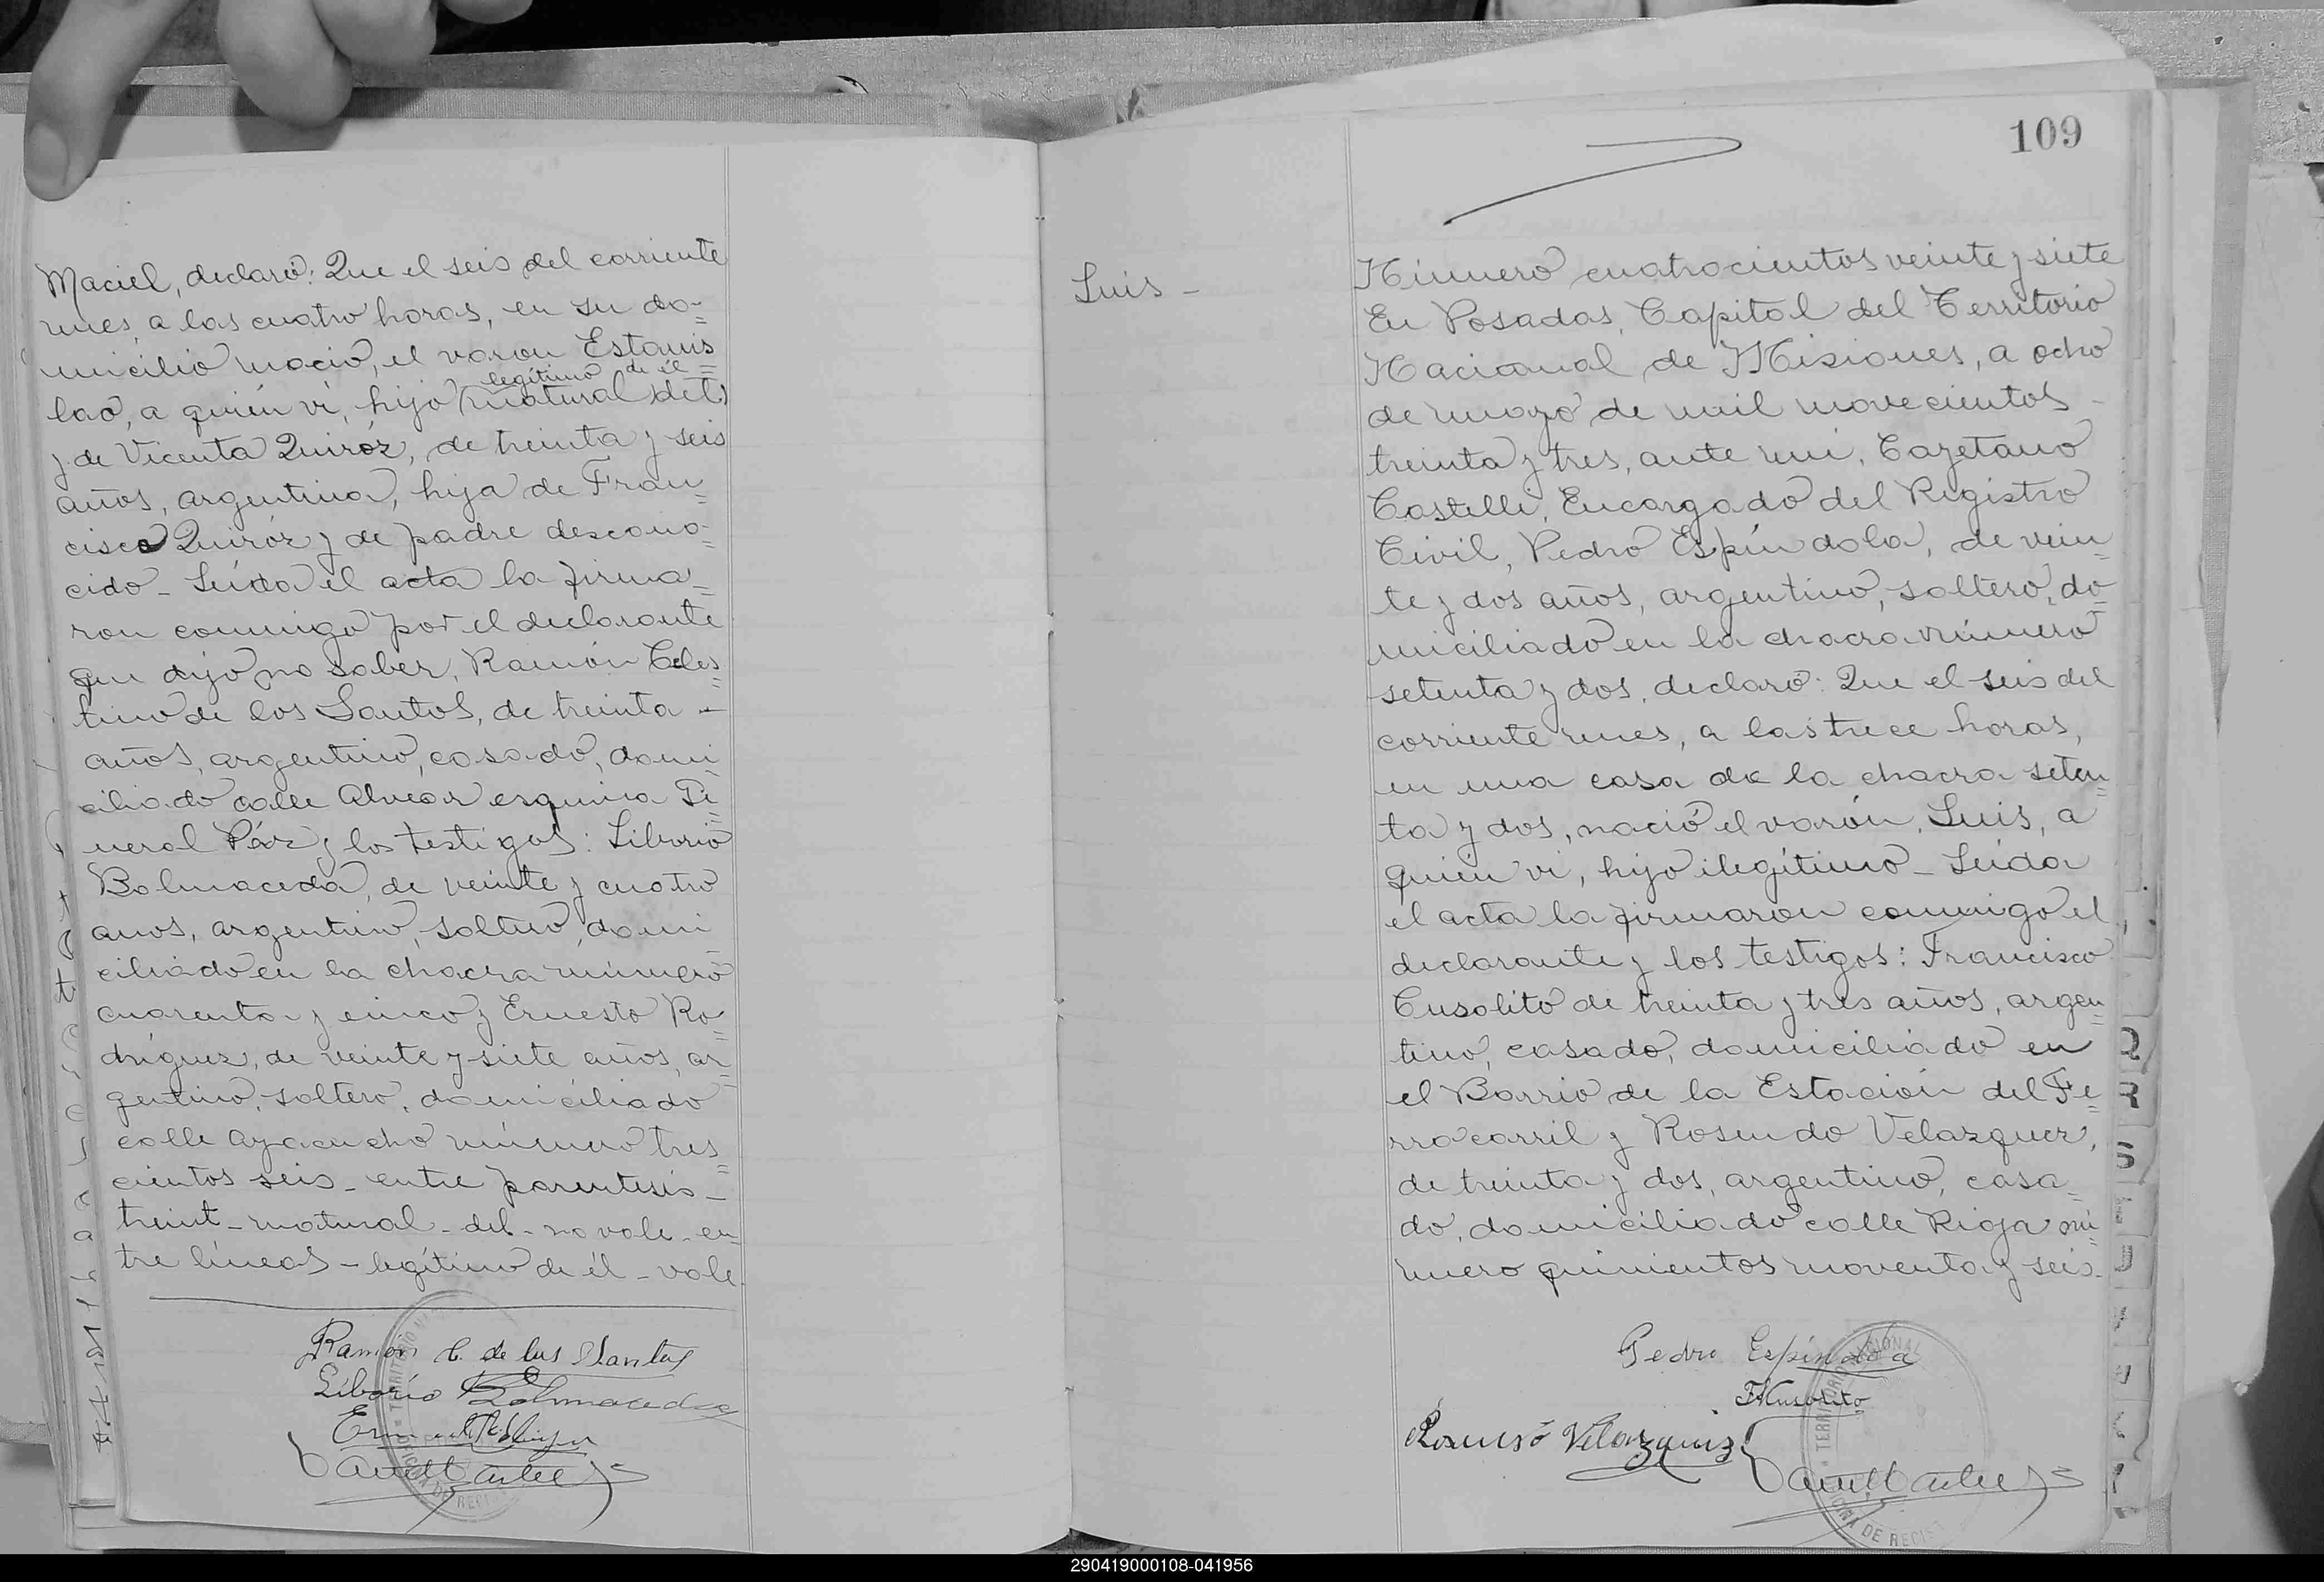 Maciel, declaró: Que el seis del corriente
mes, a las cuatro horas, en su do=
micilio nació, el varon Estanis=
legítimo de él
lao, a quién vi, hijo (natural del)
y de Vicenta Quiróz, de treinta y seis
años, argentina, hija de Fran=
cisca Quiróz y de padre descono=
cido - Leída el acta la firma=
ron conmigo por el declarante
que dijo no saber, Ramón Celes=
tino de los Santos, de treinta -
años, argentino, casado, domi=
ciliado calle Alvear esquina Ge=
neral Páz y los testigos: Liborio
Balmaceda, de veinte y cuatro
años, argentino, soltero, domi=
ciliado en la chacra número
cuarenta y cinco y Ernesto Ro=
dríguez, de veinte y siete años, ar=
gentino, soltero, domiciliado
calle Ayacucho número tres=
cientos seis - entre parentesis -
treint - natural - del - no vale - en=
tre líneas - legítimo de él - vale.
Ramón C. de los Santos
Liborio Balmaceda
109
Luis -
Número cuatrocientos veinte y siete
En Posadas, Capital del Territorio
Nacional de Misiones, a ocho
de mayo de mil novecientos -
treinta y tres, ante mi, Cayetano
Castelli, Encargado del Registro
Civil, Pedro Espíndola, de vein=
te y dos años, argentino, soltero, do=
miciliado en la chacra número
setenta y dos, declaró: Que el seis del
corriente mes, a las trece horas,
en una casa de la chacra seten=
ta y dos, nació el varón, Luis, a
quién vi, hijo ilegítimo - Leída
el acta la firmaron conmigo el
declarante y los testigos: Francisco
Cusolito de treinta y tres años, argen=
tino, casado, domiciliado en
el Barrio de la Estación del Fe=
rrocarril y Rosendo Velazquez,
de treinta y dos, argentino, casa=
do, domiciliado calle Rioja nú=
mero quinientos noventa y seis -
Pedro Espíndola
Rosendo Velazquez
Q
R
S
290419000108-041956